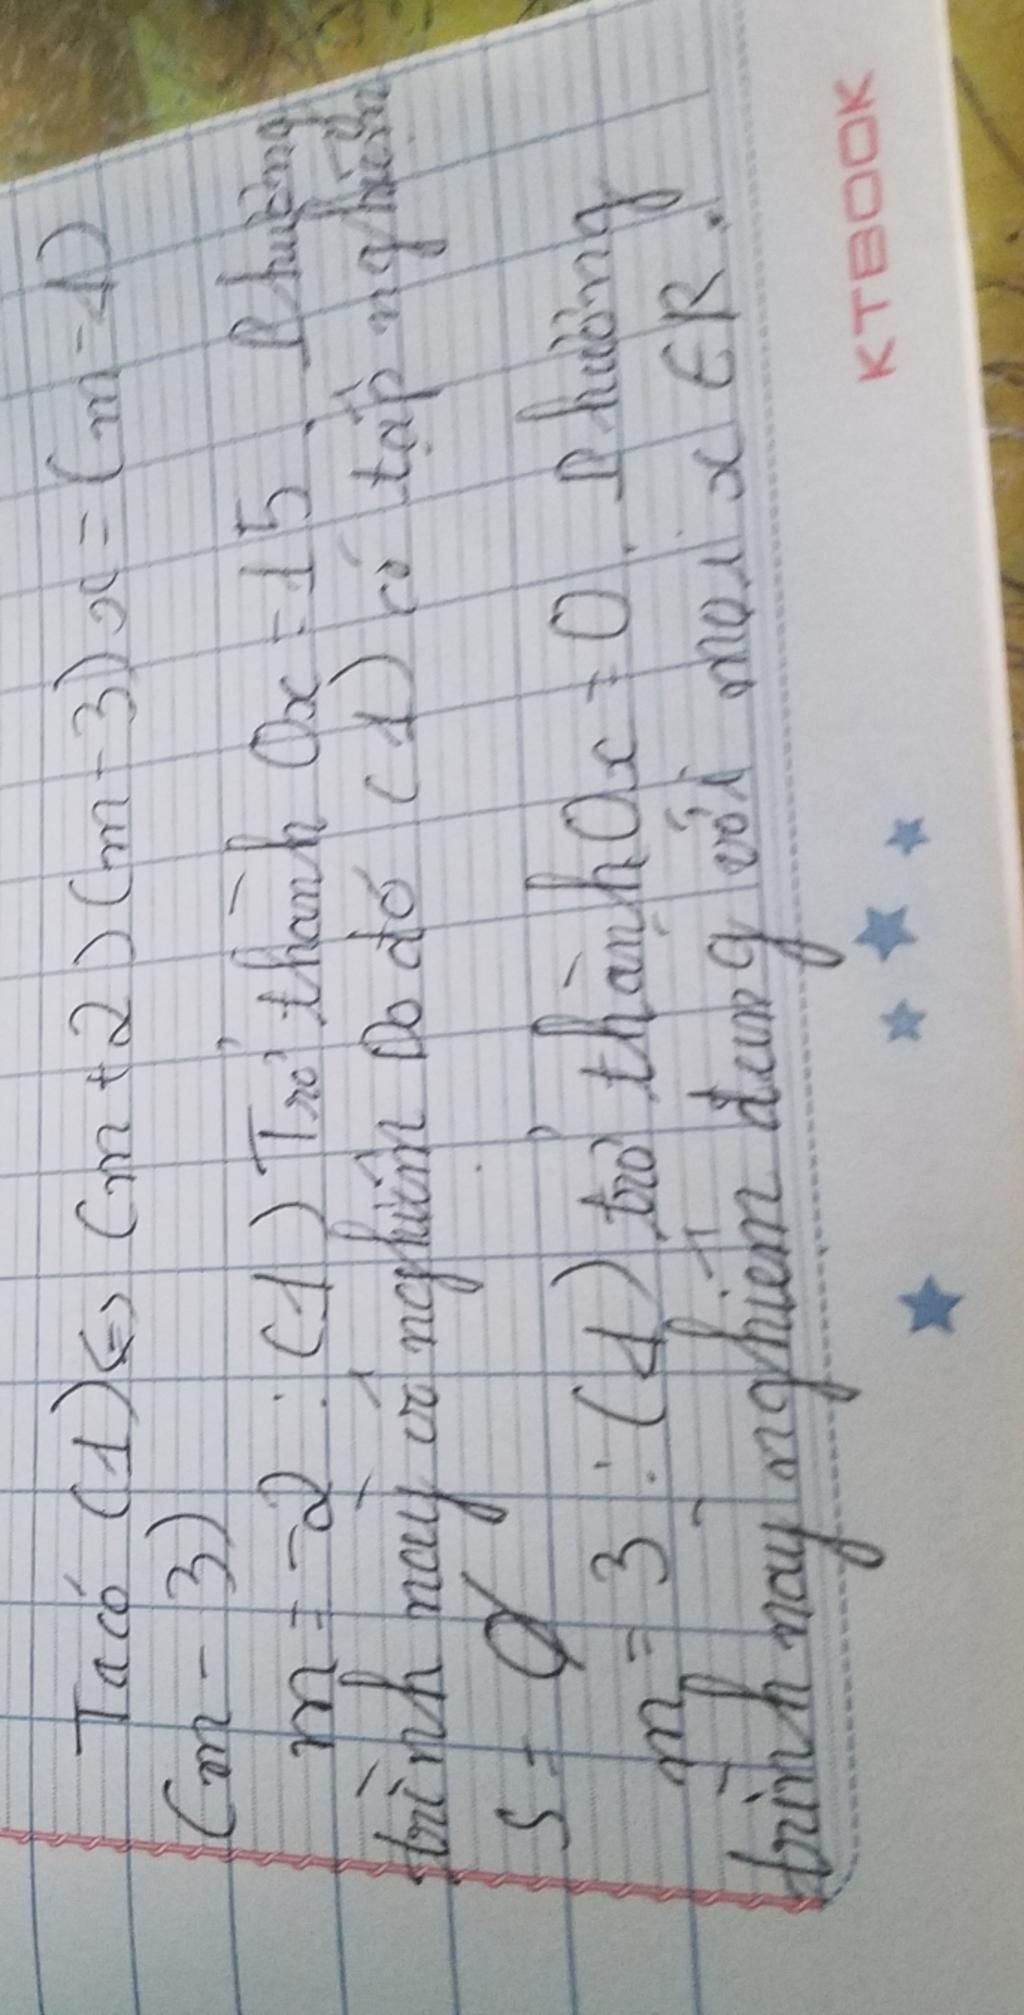 Ta có (1) <=> (m + 2) (m - 3) x = (m - 1)
(m - 3)
m = -2 : (1) Trở thành 0x = 15. Phương
trình này vô nghiệm Do đó (1) có tập nghiệm
S = Ø
m = 3 : (1) trở thành 0x = 0. Phương
trình này nghiệm đúng với mọi x ∈ R.
KTBOOK